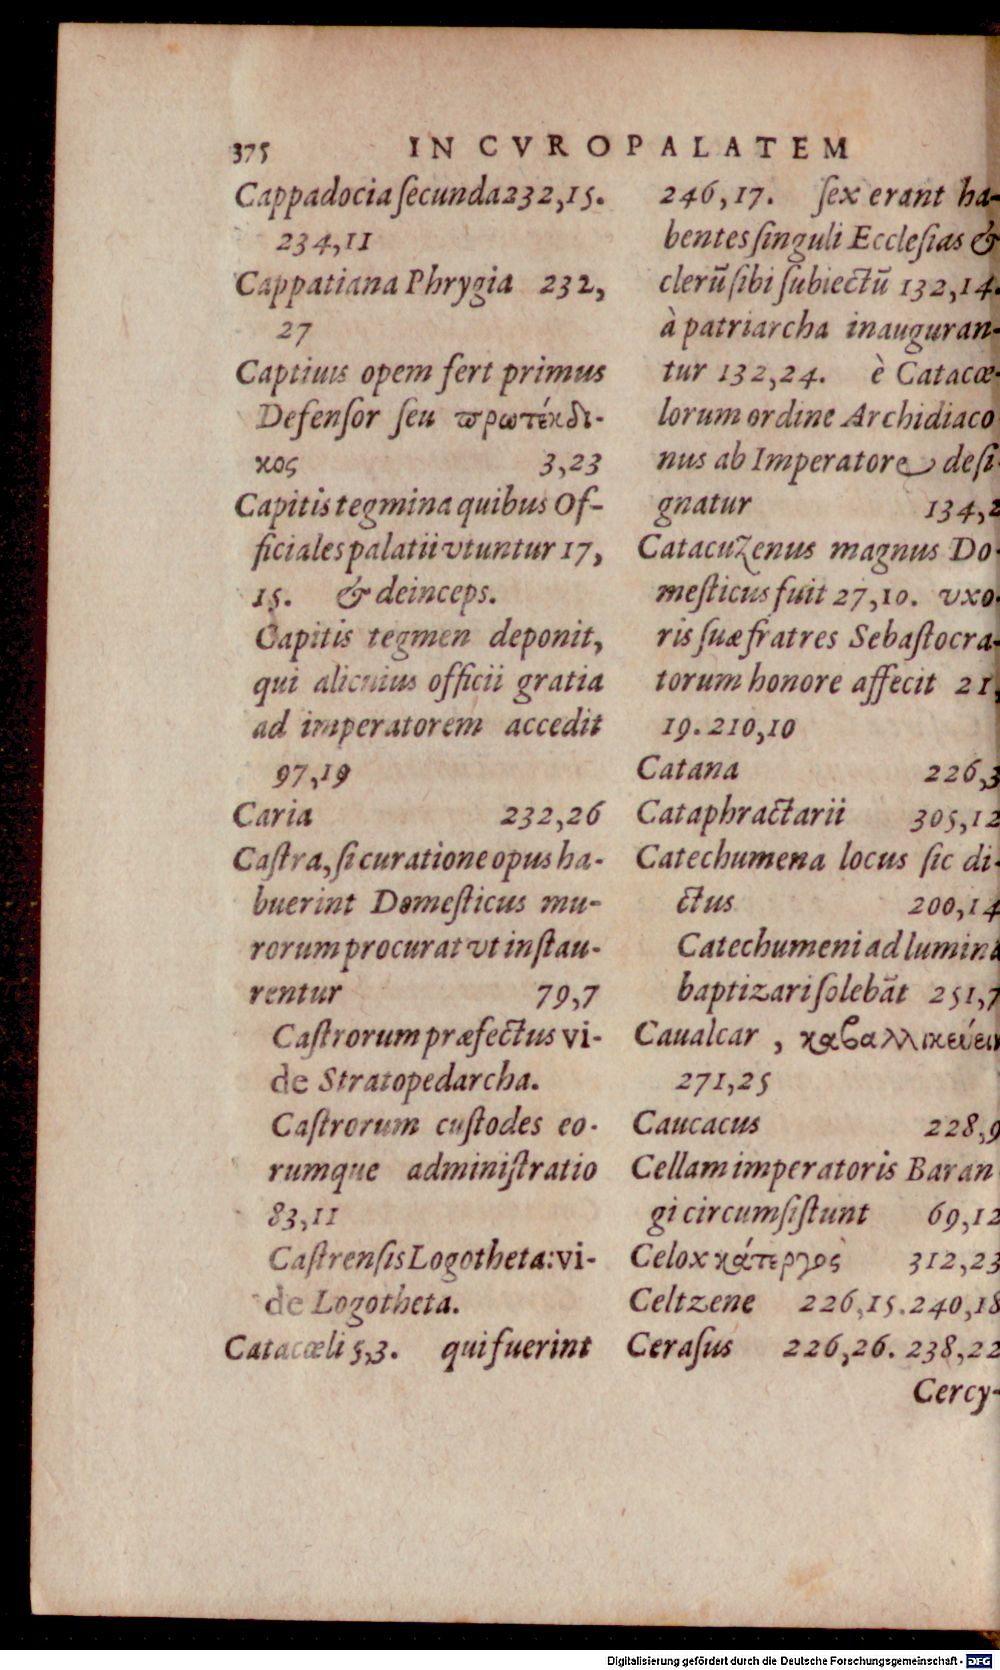 375 IN CVROPALATEM
Cappadocia ſecunda 232,15.
234,11
Cappatiana Phrygia 232,
27
Captiuis opem fert primus
Defenſor ſeu πρωτέκδι-
κος 3,23
Capitis tegmina quibus Of-
ficiales palatii vtuntur 17,
15. & deinceps.
Capitis tegmen deponit,
qui alicuius officii gratia
ad imperatorem accedit
97,19
Caria 232,26
Caſtra, ſi curatione opus ha-
buerint Domeſticus mu-
rorum procurat vt inſtau-
rentur 79,7
Caſtrorum præfectus vi-
de Stratopedarcha.
Caſtrorum cuſtodes eo-
rumque adminiſtratio
83,11
Caſtrenſis Logotheta: vi-
de Logotheta.
Catacœli 5,3. qui fuerint
246,17. ſex erant ha-
bentes ſinguli Eccleſias &
clerū ſibi ſubiectū 132,14.
à patriarcha inauguran-
tur 132,24. è Catacœ-
lorum ordine Archidiaco
nus ab Imperatore deſi-
gnatur 134,2
Catacuzenus magnus Do-
meſticus fuit 27,10. vxo-
ris ſuæ fratres Sebaſtocra-
torum honore affecit 21,
19. 210,10
Catana 226,3
Cataphractarii 305,12
Catechumena locus ſic di-
ctus 200,14
Catechumeni ad lumina
baptizari ſolebāt 251,7
Caualcar, καβαλλικεύειν
271,25
Caucacus 228,9
Cellam imperatoris Baran
gi circumſiſtunt 69,12
Celox κάτεργος 312,23
Celtzene 226,15. 240,18
Ceraſus 226,26. 238,22
Cercy-
Digitalisierung gefördert durch die Deutsche Forschungsgemeinschaft - DFG